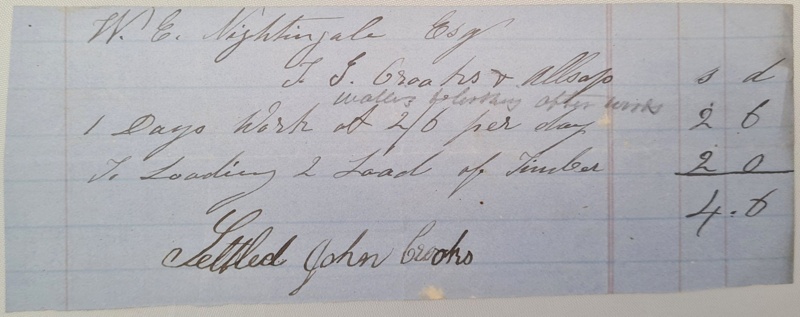 W. E. Nightingale Esq
To G. Crooks & Allsop s d
looking after work
1 Days Work at 2/6 per day 2 6
To Loading 2 Load of Timber 2 0
4.6
Settled John Crooks